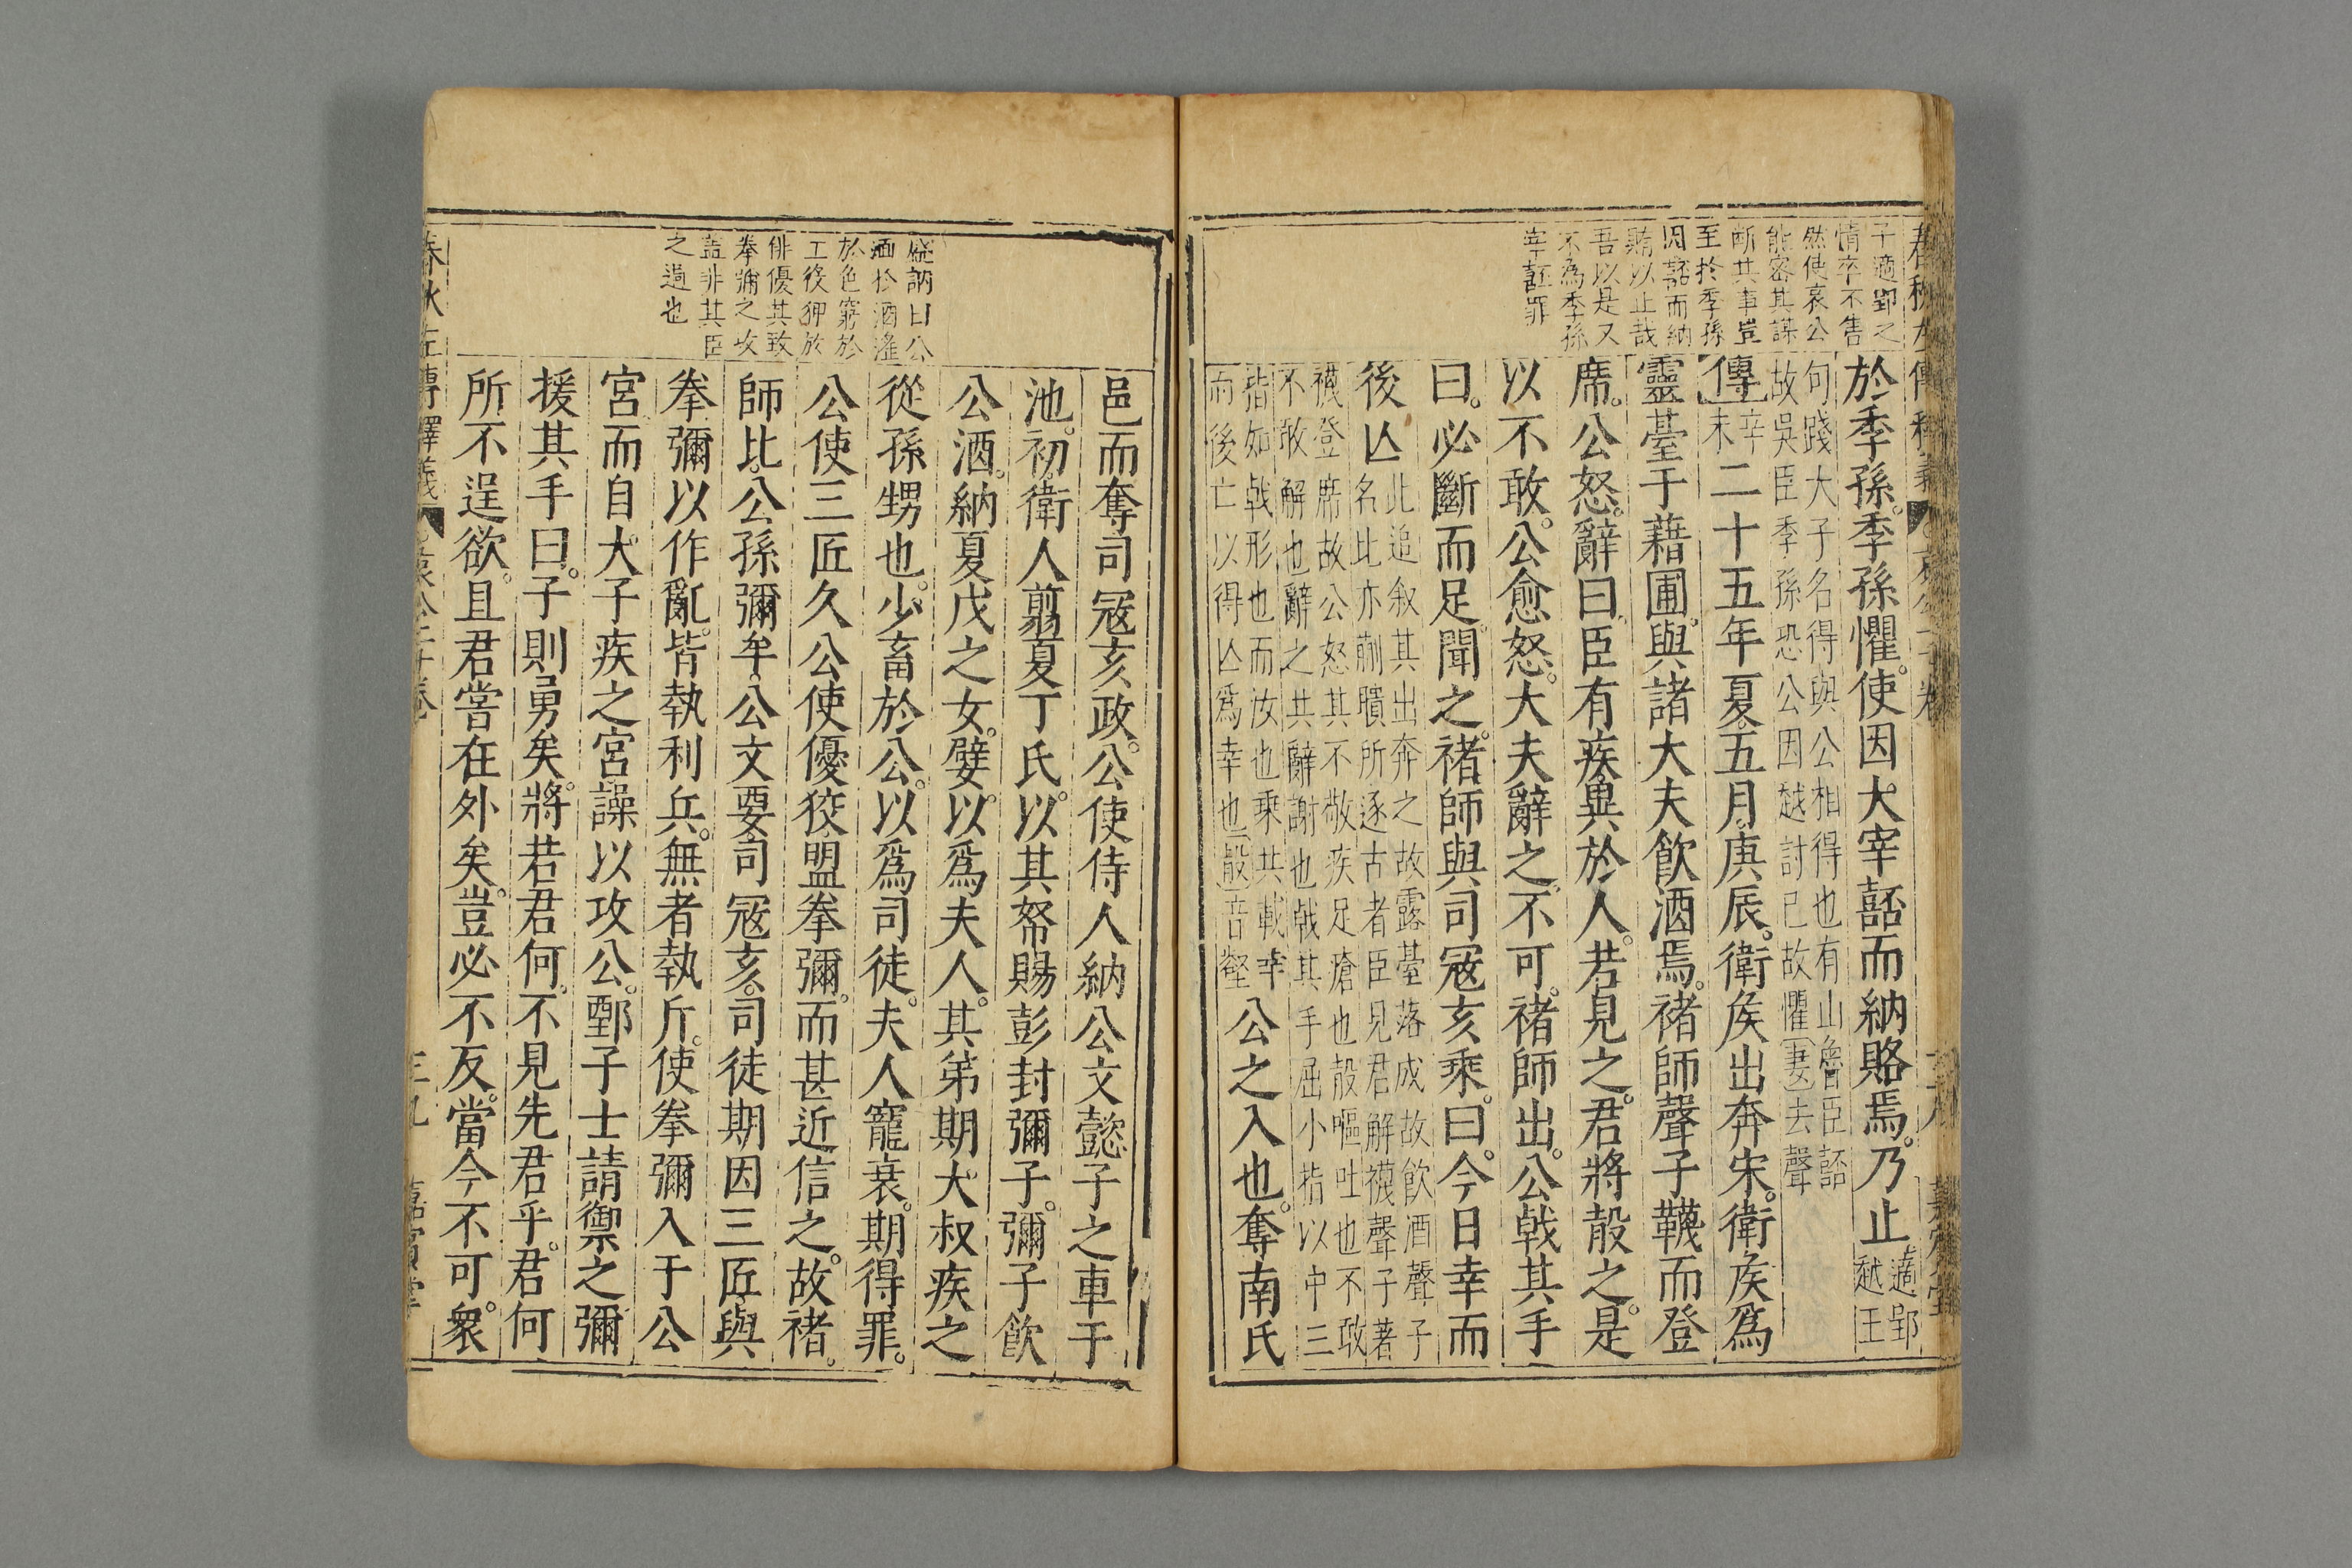 子適郢之
情卒不告
然使哀公
能密其謀
斷其事豈
至於季孫
因嚭而納
賄以止哉
吾以是又
不為季孫
宰嚭罪
於季孫。季孫懼。使因大宰嚭而納賂焉。乃止適郢
越王
句踐大子名得與公相得也有山魯臣嚭
故吳臣季孫恐公因越討已故懼妻去聲
傳辛
未二十五年夏五月庚辰。衛侯出奔宋。衛侯爲
靈臺于藉圃。與諸大夫飲酒焉。褚師聲子韈而登
席。公怒。辭曰。臣有疾異於人。若見之。君將嗀之。是
以不敢。公愈怒。大夫辭之。不可。褚師出。公戟其手
曰。必斷而足。聞之。褚師與司寇亥乘。曰。今日幸而
後亾此追叙其出奔之故露臺落成故飲酒聲子
名比亦蒯聵所逐古者臣見君解襪聲子著
襪登席故公怒其不敬疾足瘡也嗀嘔吐也不敢
不敢解也辭之共辭謝也戟其手屈小指以中三
指如戟形也而汝也乘共載幸
而後亡以得亾爲幸也嗀音壑公之入也。奪南氏
春秋左傳釋義
哀公二十卷
盛訥曰公
湎於酒滛
於色窮於
工役狎於
俳優其致
拳彌之攻
葢非其臣
之過也
邑而奪司寇亥政。公使侍人納公文懿子之車于
池。初。衛人翦夏丁氏。以其帑賜彭封彌子。彌子飲
公酒。納夏戊之女。嬖。以爲夫人。其弟期。大叔疾之
從孫甥也。少畜於公。以爲司徒。夫人寵衰。期得罪。
公使三匠久公使優狡盟拳彌。而甚近信之。故褚。
師比。公孫彌牟。公文要。司寇亥。司徒期因三匠與
拳彌以作亂。皆執利兵。無者執斤。使拳彌入于公
宮。而自大子疾之宮譟以攻公。鄄子士請禦之彌
援其手曰。子則勇矣。將若君何。不見先君乎。君何
所不逞欲。且君嘗在外矣。豈必不反。當今不可。衆
春秋左傳釋義
哀公二十卷
三九
嘉賓堂